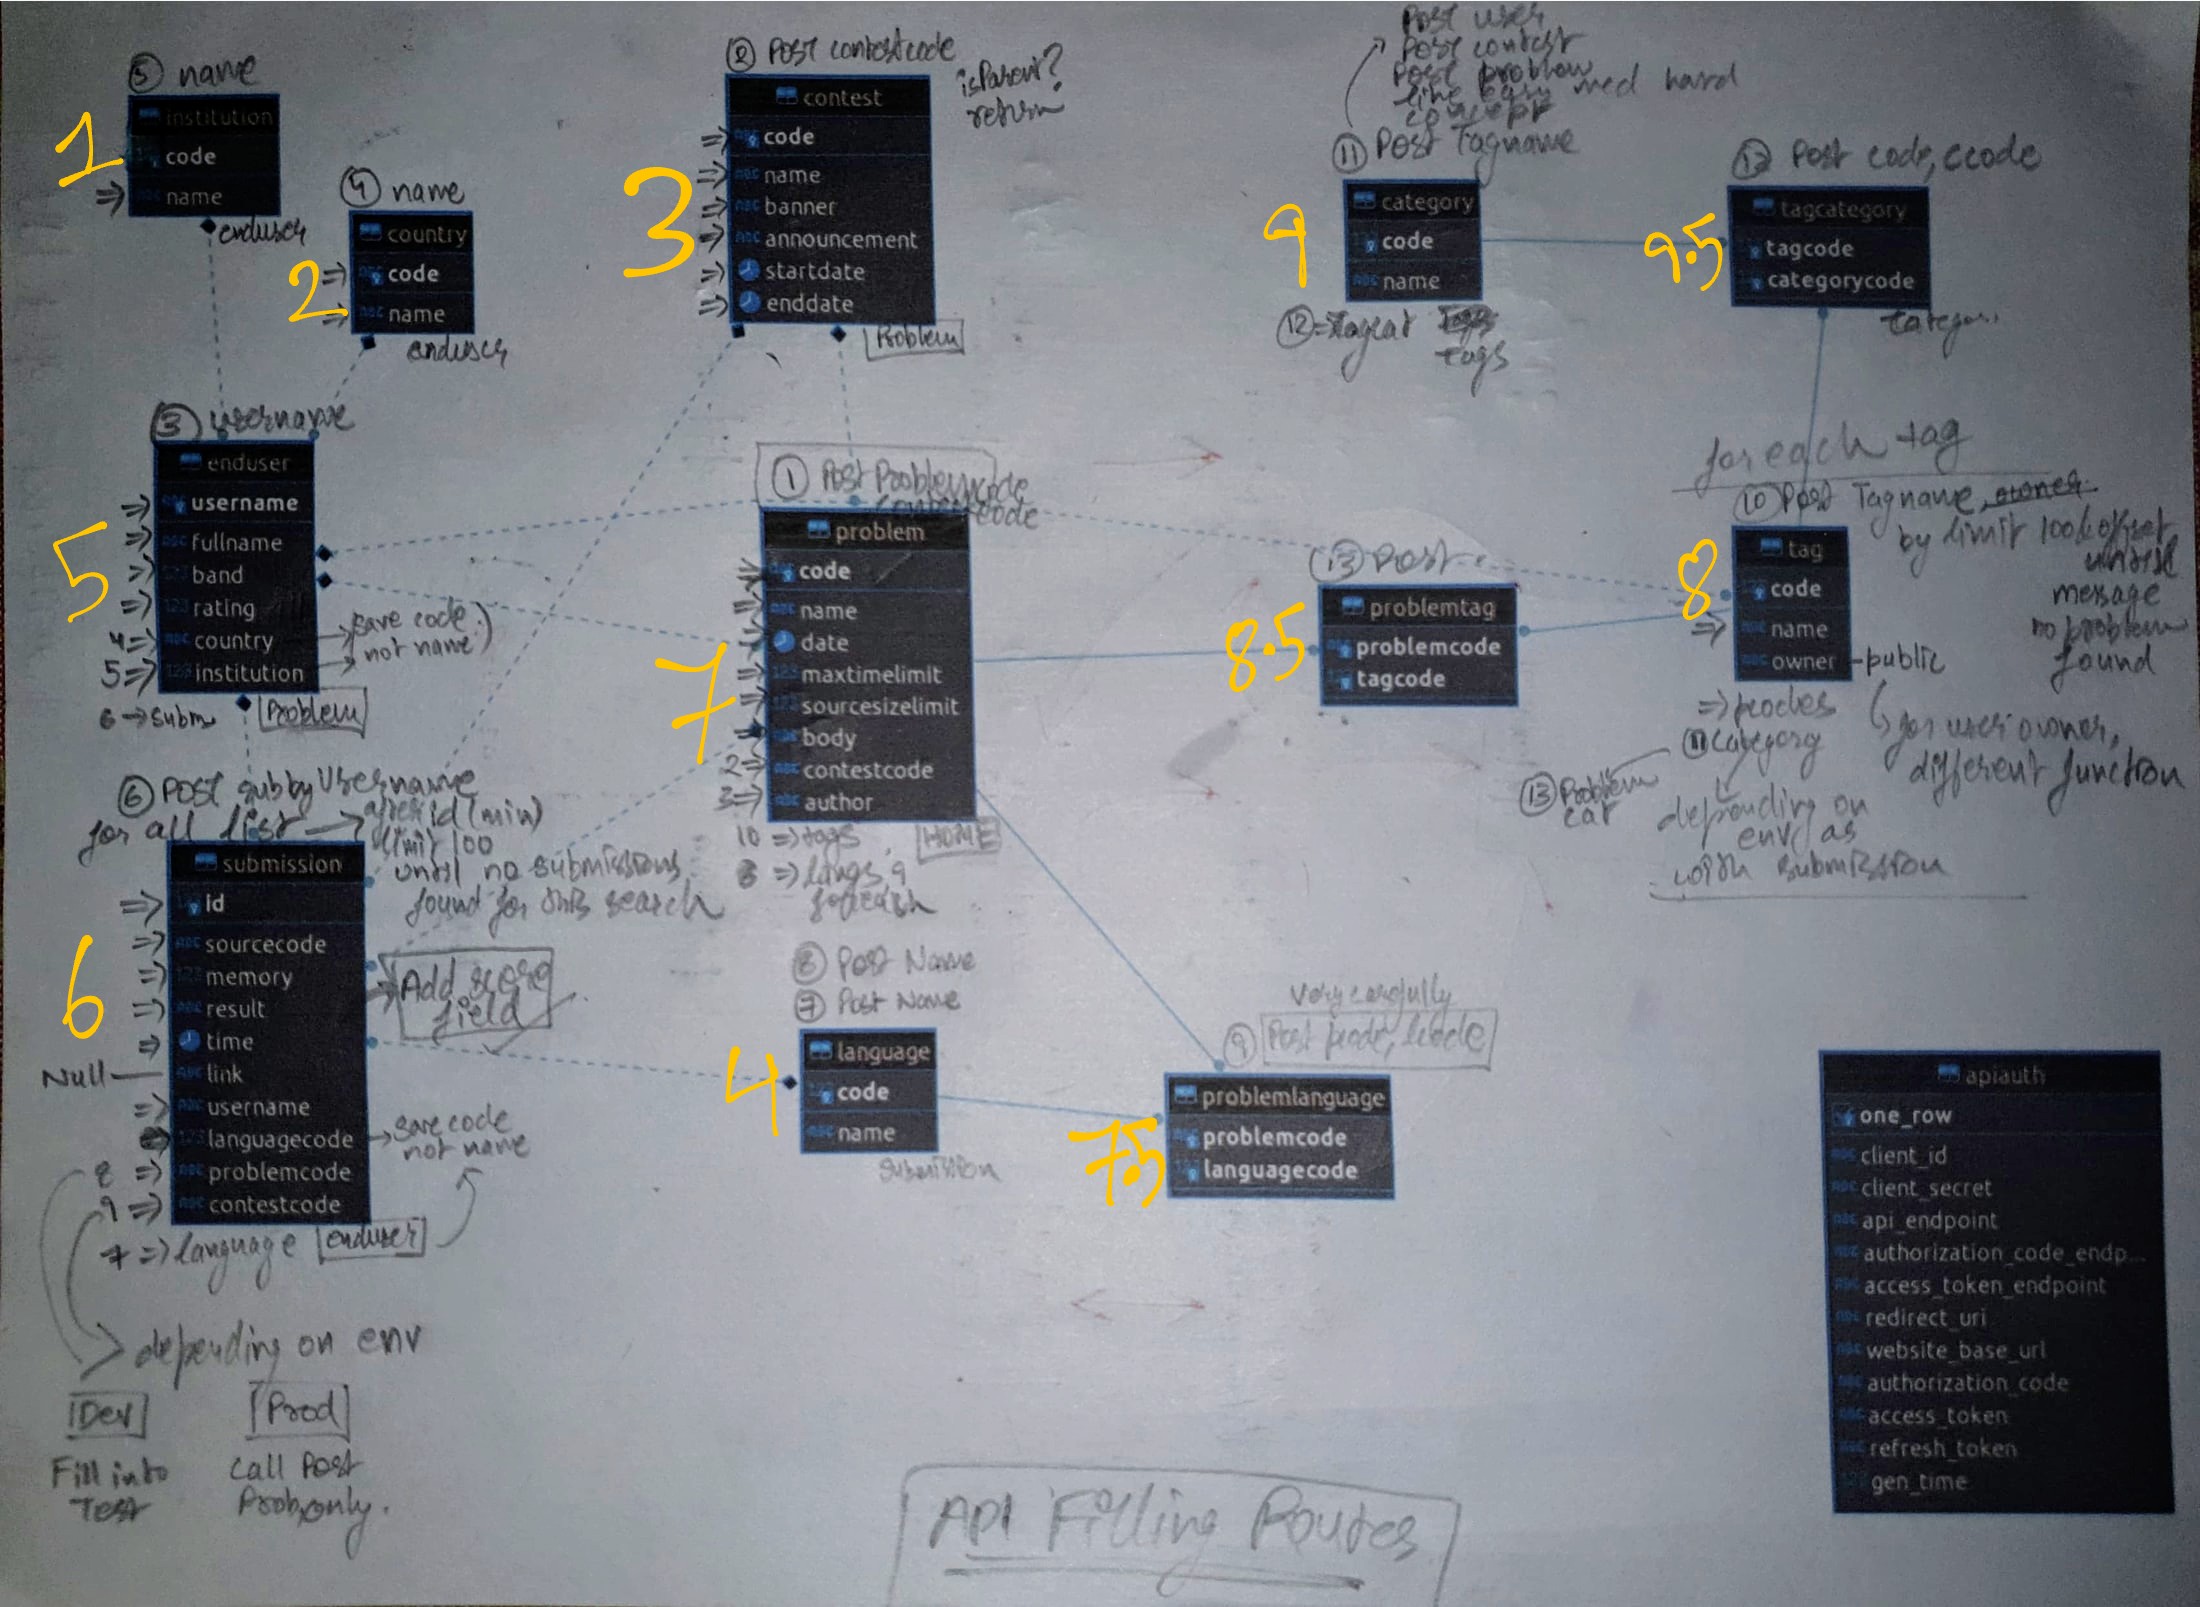 ⑤ name
1
institution
code
⇒ name
enduser
④ name
country
2
⇒ code
⇒ name
enduser
② Post contestcode
isParent?
return
contest
3
⇒ code
⇒ name
⇒ banner
⇒ announcement
⇒ startdate
⇒ enddate
Problem
Post user
Post contest
Post problem
med hard
⑪ Post Tagname
9
category
code
name
tags
⑫ Post code, ccode
9.5
tagcategory
tagcode
categorycode
③ username
enduser
5
⇒ username
⇒ fullname
⇒ band
⇒ rating
4⇒ country
5⇒ institution
save code
not name
6 → subm
Problem
① Post Problemcode
problem
7
code
name
date
maxtimelimit
sourcesizelimit
body
2⇒ contestcode
3⇒ author
10 ⇒ tags
HOME
8 ⇒ langs, 9
foreach
⑬ Post
8.5
problemtag
problemcode
tagcode
for each tag
⑩ Post Tagname,
by limit 100 & offset
until
message
no problem
found
8
tag
code
⇒ name
owner - public
⇒ pcodes
⑪ category
for user owner,
different function
⑬ Problem
cat
depending on
env as
with submission
⑥ Post sub by Username
for all list → after id (min)
limit 100
until no submissions
found for this search
submission
6
⇒ id
⇒ sourcecode
⇒ memory
⇒ result
⇒ time
Null — link
⇒ username
languagecode
8 ⇒ problemcode
9 ⇒ contestcode
7 ⇒ language
enduser
Add score
field
save code
not name
depending on env
Dev
Fill into
Test
Prod
Call Post
Prob, only.
⑧ Post Name
⑦ Post Name
4
language
code
name
submission
Very carefully
⑨ Post pcode, lcode
7.5
problemlanguage
problemcode
languagecode
apiauth
one_row
client_id
client_secret
api_endpoint
authorization_code_endp...
access_token_endpoint
redirect_uri
website_base_url
authorization_code
access_token
refresh_token
gen_time
API Filling Routes